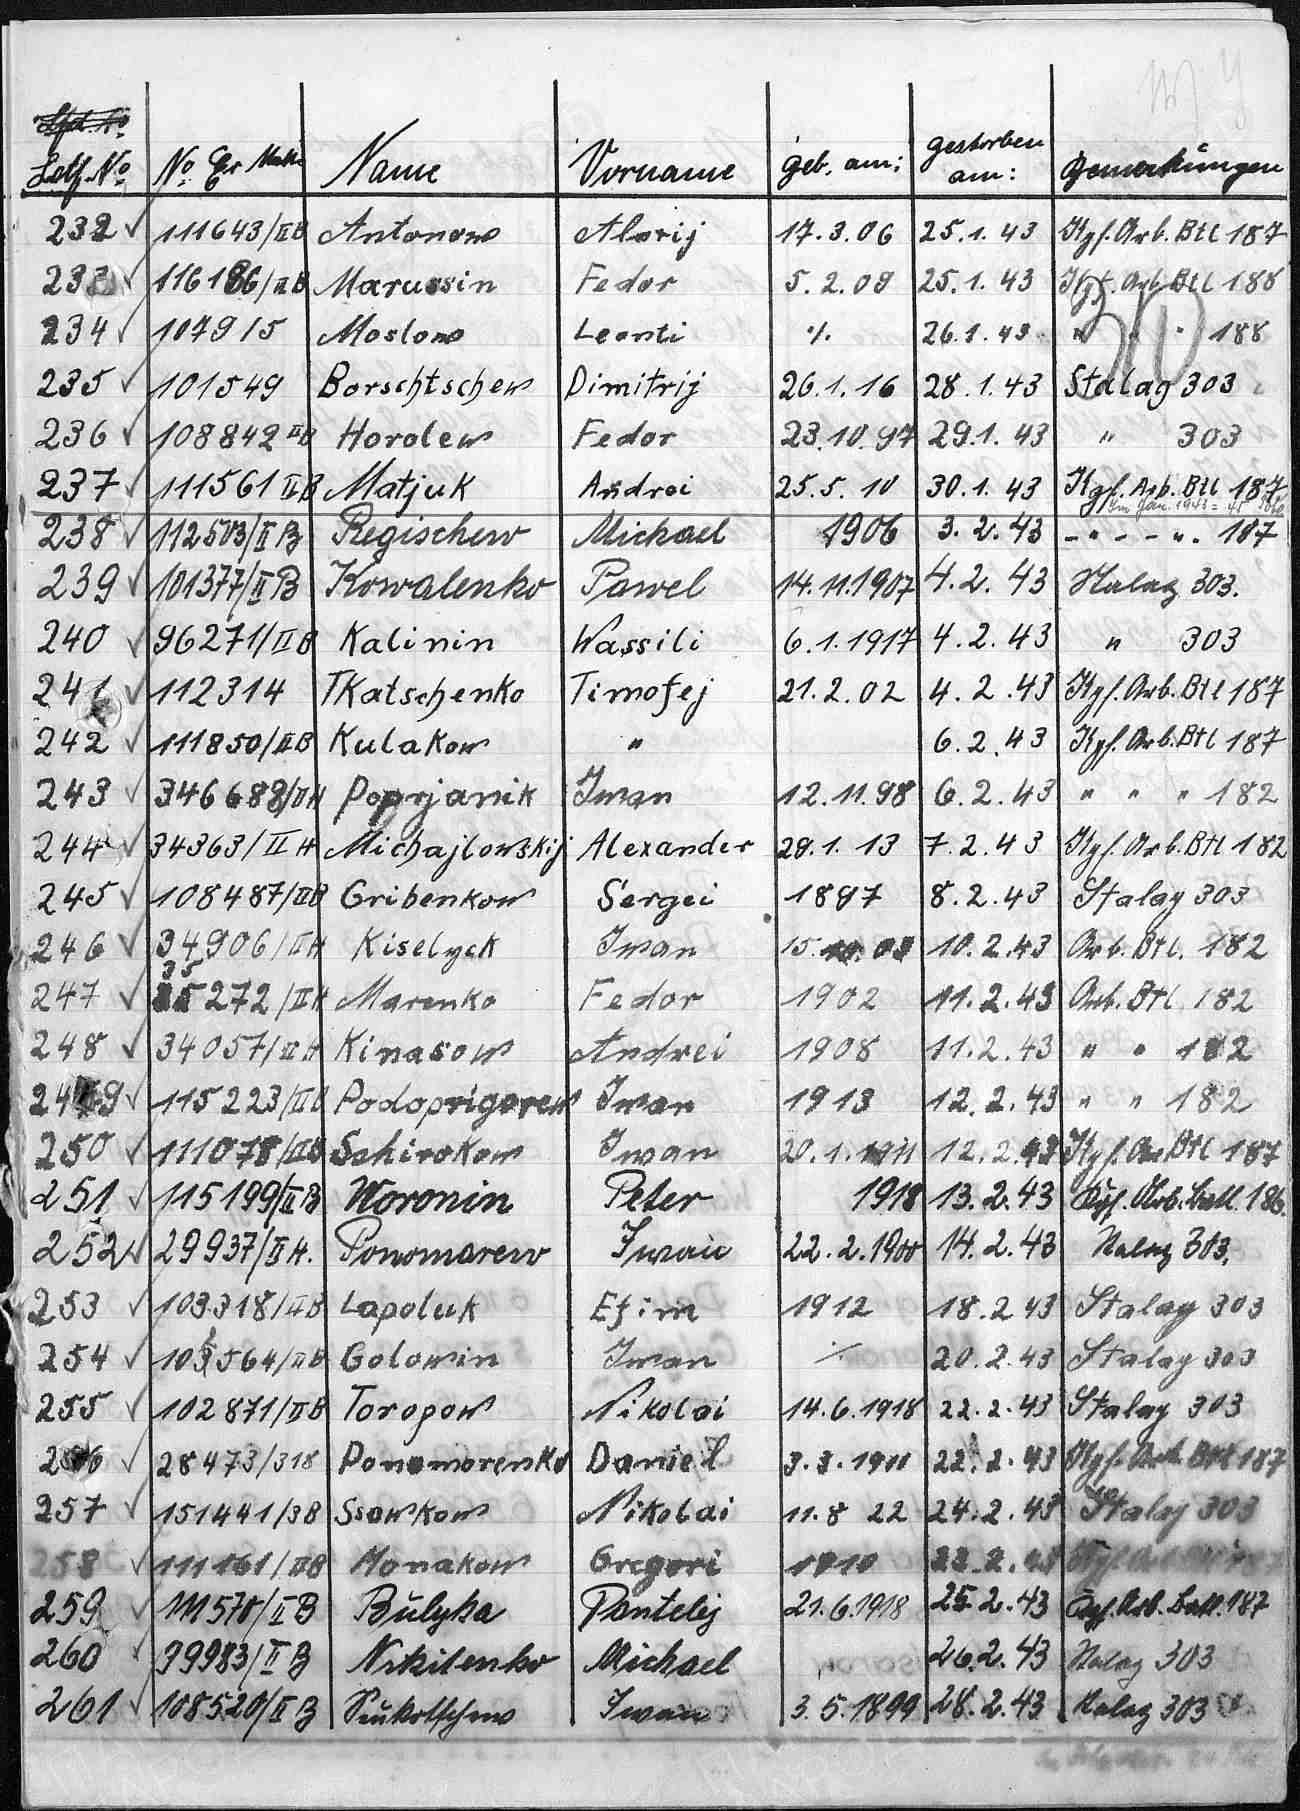 Laufd. No
Lauf. No No Er Marke Name Vorname geb. am: gestorben am: Bemerkungen
232 111643/IIB Antonow Alexij 17.3.06 25.1.43 Kgf. Arb. Btl 187
233 116186/IIB Marussin Fedor 5.2.09 25.1.43 Kgf. Arb. Btl 188
234 107915 Moslow Leonti ./. 26.1.43 " " " 188
235 101549 Borschtschew Dimitrij 26.1.16 28.1.43 Stalag 303
236 108842 IIB Horolew Fedor 23.10.97 29.1.43 " 303
237 111561 IIB Matjuk Andrei 25.5.10 30.1.43 Kgf. Arb. Btl 187
Im Jan. 1943 = 45
238 112503/IIB Regischew Michael 1906 3.2.43 - " - - ". 187
239 101377/IIB Kowalenko Pawel 14.11.1907 4.2.43 Stalag 303.
240 96271/IIB Kalinin Wassili 6.1.1917 4.2.43 " 303
241 112314 Tkatschenko Timofej 21.2.02 4.2.43 Kgf. Arb. Btl 187
242 111850/IIB Kulakow " 6.2.43 Kgf. Arb. Btl 187
243 346688/VIH Poprjanik Iwan 12.11.98 6.2.43 " " " 182
244 34363/IIH Michajlowskij Alexander 28.1.13 7.2.43 Kgf. Arb. Btl 182
245 108487/IIB Gribenkow Sergei 1897 8.2.43 Stalag 303
246 34906/IIH Kiselyck Iwan 15.10.03 10.2.43 Arb. Btl. 182
247 35272/IIH Marenko Fedor 1902 11.2.43 Arb. Btl. 182
248 34057/IIH Kinasow Andrei 1908 11.2.43 " " 182
249 115223/IIB Podoprigorew Iwan 1913 12.2.43 " " 182
250 111078/IIB Schirokow Iwan 20.1.1911 12.2.43 Kgf. Arb Btl 187
251 115199/IIB Woronin Peter 1918 13.2.43 Kgf. Arb. Batl. 186.
252 29937/IIH. Ponomarew Iwan 22.2.1900 14.2.43 Stalag 303.
253 103318/IIB Lapoluk Efim 1912 18.2 43 Stalag 303
254 103564/IIB Golowin Iwan ./. 20.2.43 Stalag 303
255 102871/IIB Toropow Nikolai 14.6.1918 22.2.43 Stalag 303
256 28473/318 Ponomorenko Daniel 3.3.1911 22.2.43 Kgf. Arb. Btl 187
257 151441/3B Ssowkow Nikolai 11.8 22 24.2.43 Stalag 303
258 111161/IIB Monakow Gregori 1910
259 111570/IIB Bulyka Pantelej 21.6.1918 25.2.43 Kgf. Arb. Batl. 187
260 99983/IIB Nikitenko Michael 26.2.43 Stalag 303
261 108520/IIB Iwan 3.5.1899 28.2.43 Stalag 303